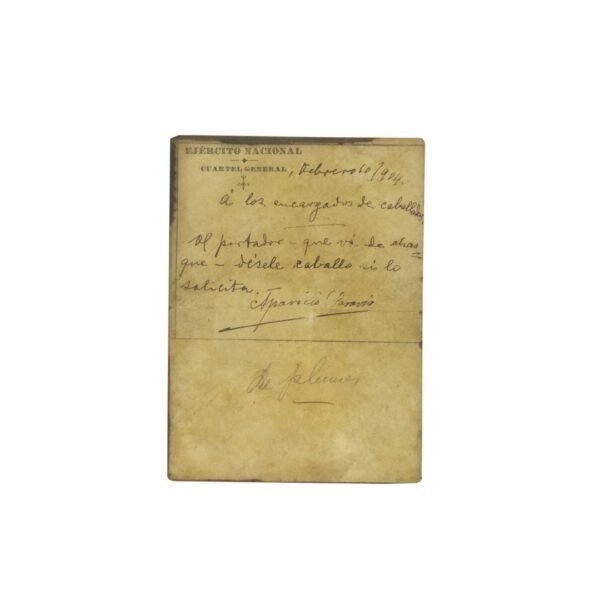 EJÉRCITO NACIONAL
CUARTEL GENERAL, Febrero 10/904.
Á los encargados de caballadas,
Al portador - que vá de chas
que - désele caballo si lo
solicita.
Aparicio Saravia